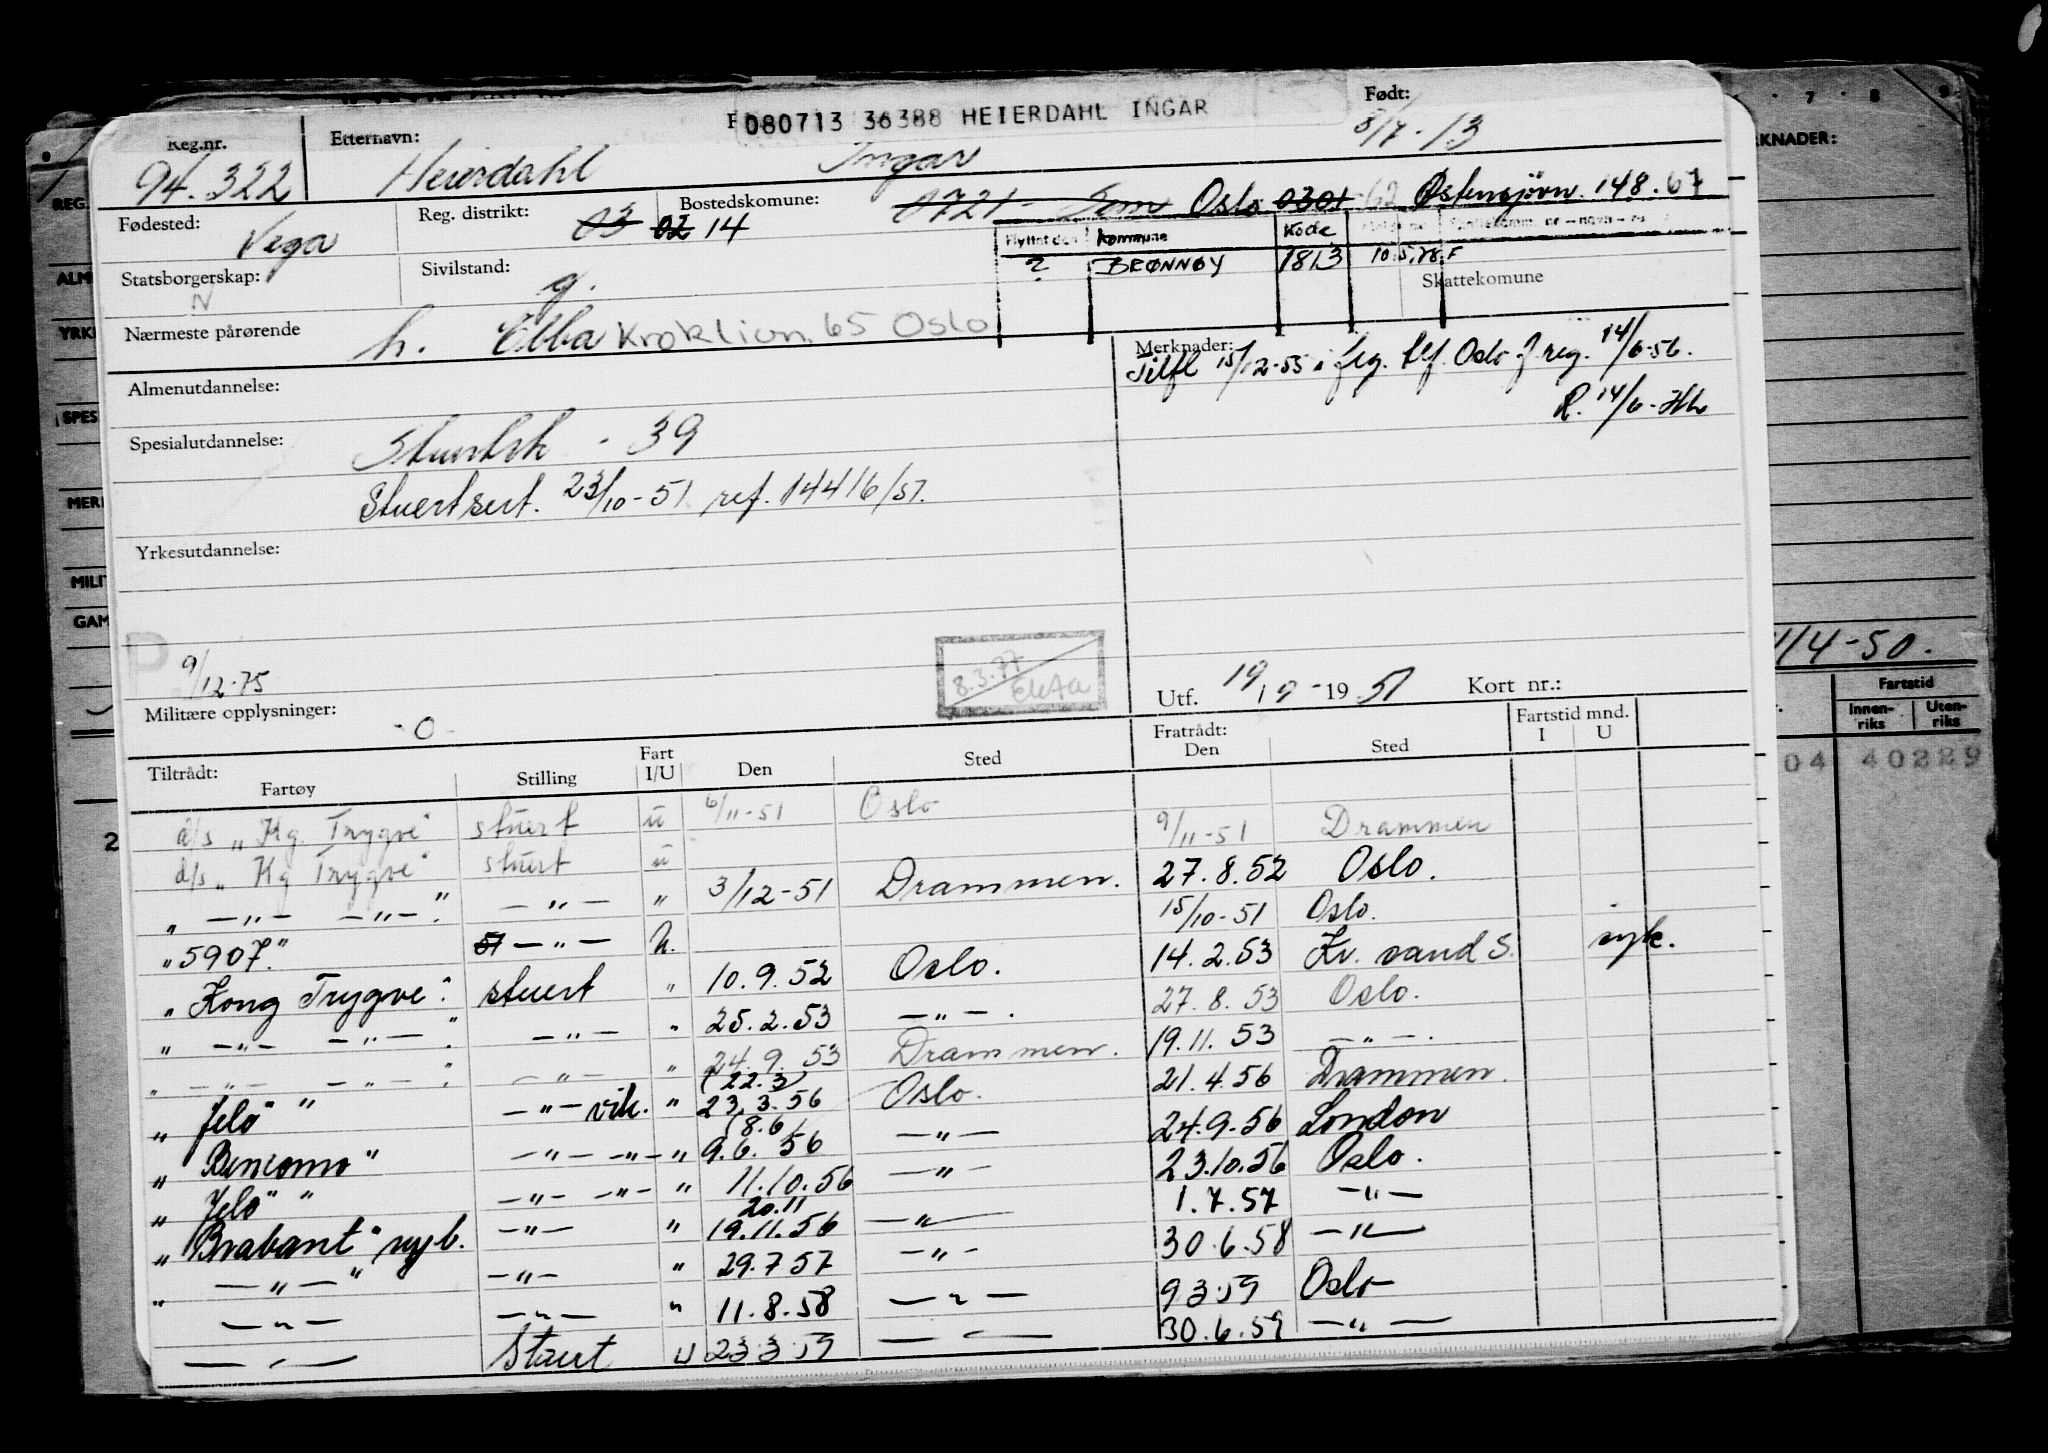 080713 36388 HEIERDAHL INGAR
Født:
8/7-13
Reg.nr.
94.322
Etternavn:
Heierdahl Ingar
Fødested:
Vega
Reg. distrikt:
03 02 14
Bostedskomune:
0721 - Sem Oslo 0301 62 Østensjøvn. 148.67
Flyttet den Kommune Kode
? BRØNNØY 1813 10.5.78.F
Statsborgerskap:
N
Sivilstand:
g.
Skattekomune
Nærmeste pårørende
h. Ebba Kroklia 65 Oslo
Merknader:
Tilfl 15/12-55 i flg. Oslo 14/6-56.
R. 14/6-
Almenutdannelse:
Spesialutdannelse:
- 39
Stuertsert. 23/10-51 ref. 14416/51.
Yrkesutdannelse:
P.
9/12-75
8.3.77
Utf. 19 - 19 51 Kort nr.:
Militære opplysninger:
-0-
Tiltrådt: Fartøy Stilling Fart I/U Den Sted Fratrådt: Den Sted Fartstid mnd. I U
d/s "Kg. Trygve" stuert u 6/11-51 Oslo 9/11-51 Drammen
d/s "Kg Trygve" stuert u 3/12-51 Drammen. 27.8.52 Oslo.
" -"- -"-" -"- " 15/10-51 Oslo.
"5907" 51 -"- U. 14.2.53 Kr.sand S. syk.
" Kong Trygve" stuert " 10.9.52 Oslo. 27.8.53 Oslo.
" -"- -"-" -"- " 25.2.53 -"-. 19.11.53 -"-.
" -"- -"-" -"- " 24.9.53 Drammen. 21.4.56 Drammen.
(22.3)
" Jelø " -"- vik. " 23.3.56 Oslo. 24.9.56 London
(8.6)
" Bencomo" -"- -"- " 9.6.56 -"- 23.10.56 Oslo.
" Jelø " -"- -"- " 11.10.56 -"- 1.7.57 -"-
20.11
" Brabant" nyb. -"- " 19.11.56 -"- 30.6.58 -"-
" -"-" -"- " 29.7 57 -"- 9 3 59 Oslo
-"- -"- " 11.8.58 -"- 30.6.59 -"-
-"- Stuert U 23 3 59 -"-
7 8 9
KNADER:
REG.
SPES
GAM
1/4-50.
Fartstid
Innen-riks Uten-riks
04 40229
2